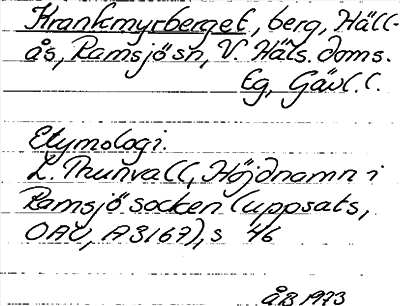 Krankmyrberget, berg, Häll-
ås, Ramsjö sn, V. Häls. doms.
Eg, Gävl. l.
Etymologi.
L. Thunvall, Höjdnamn i
Ramsjö socken (uppsats,
OAU, A3167), s 46
ÅB 1973